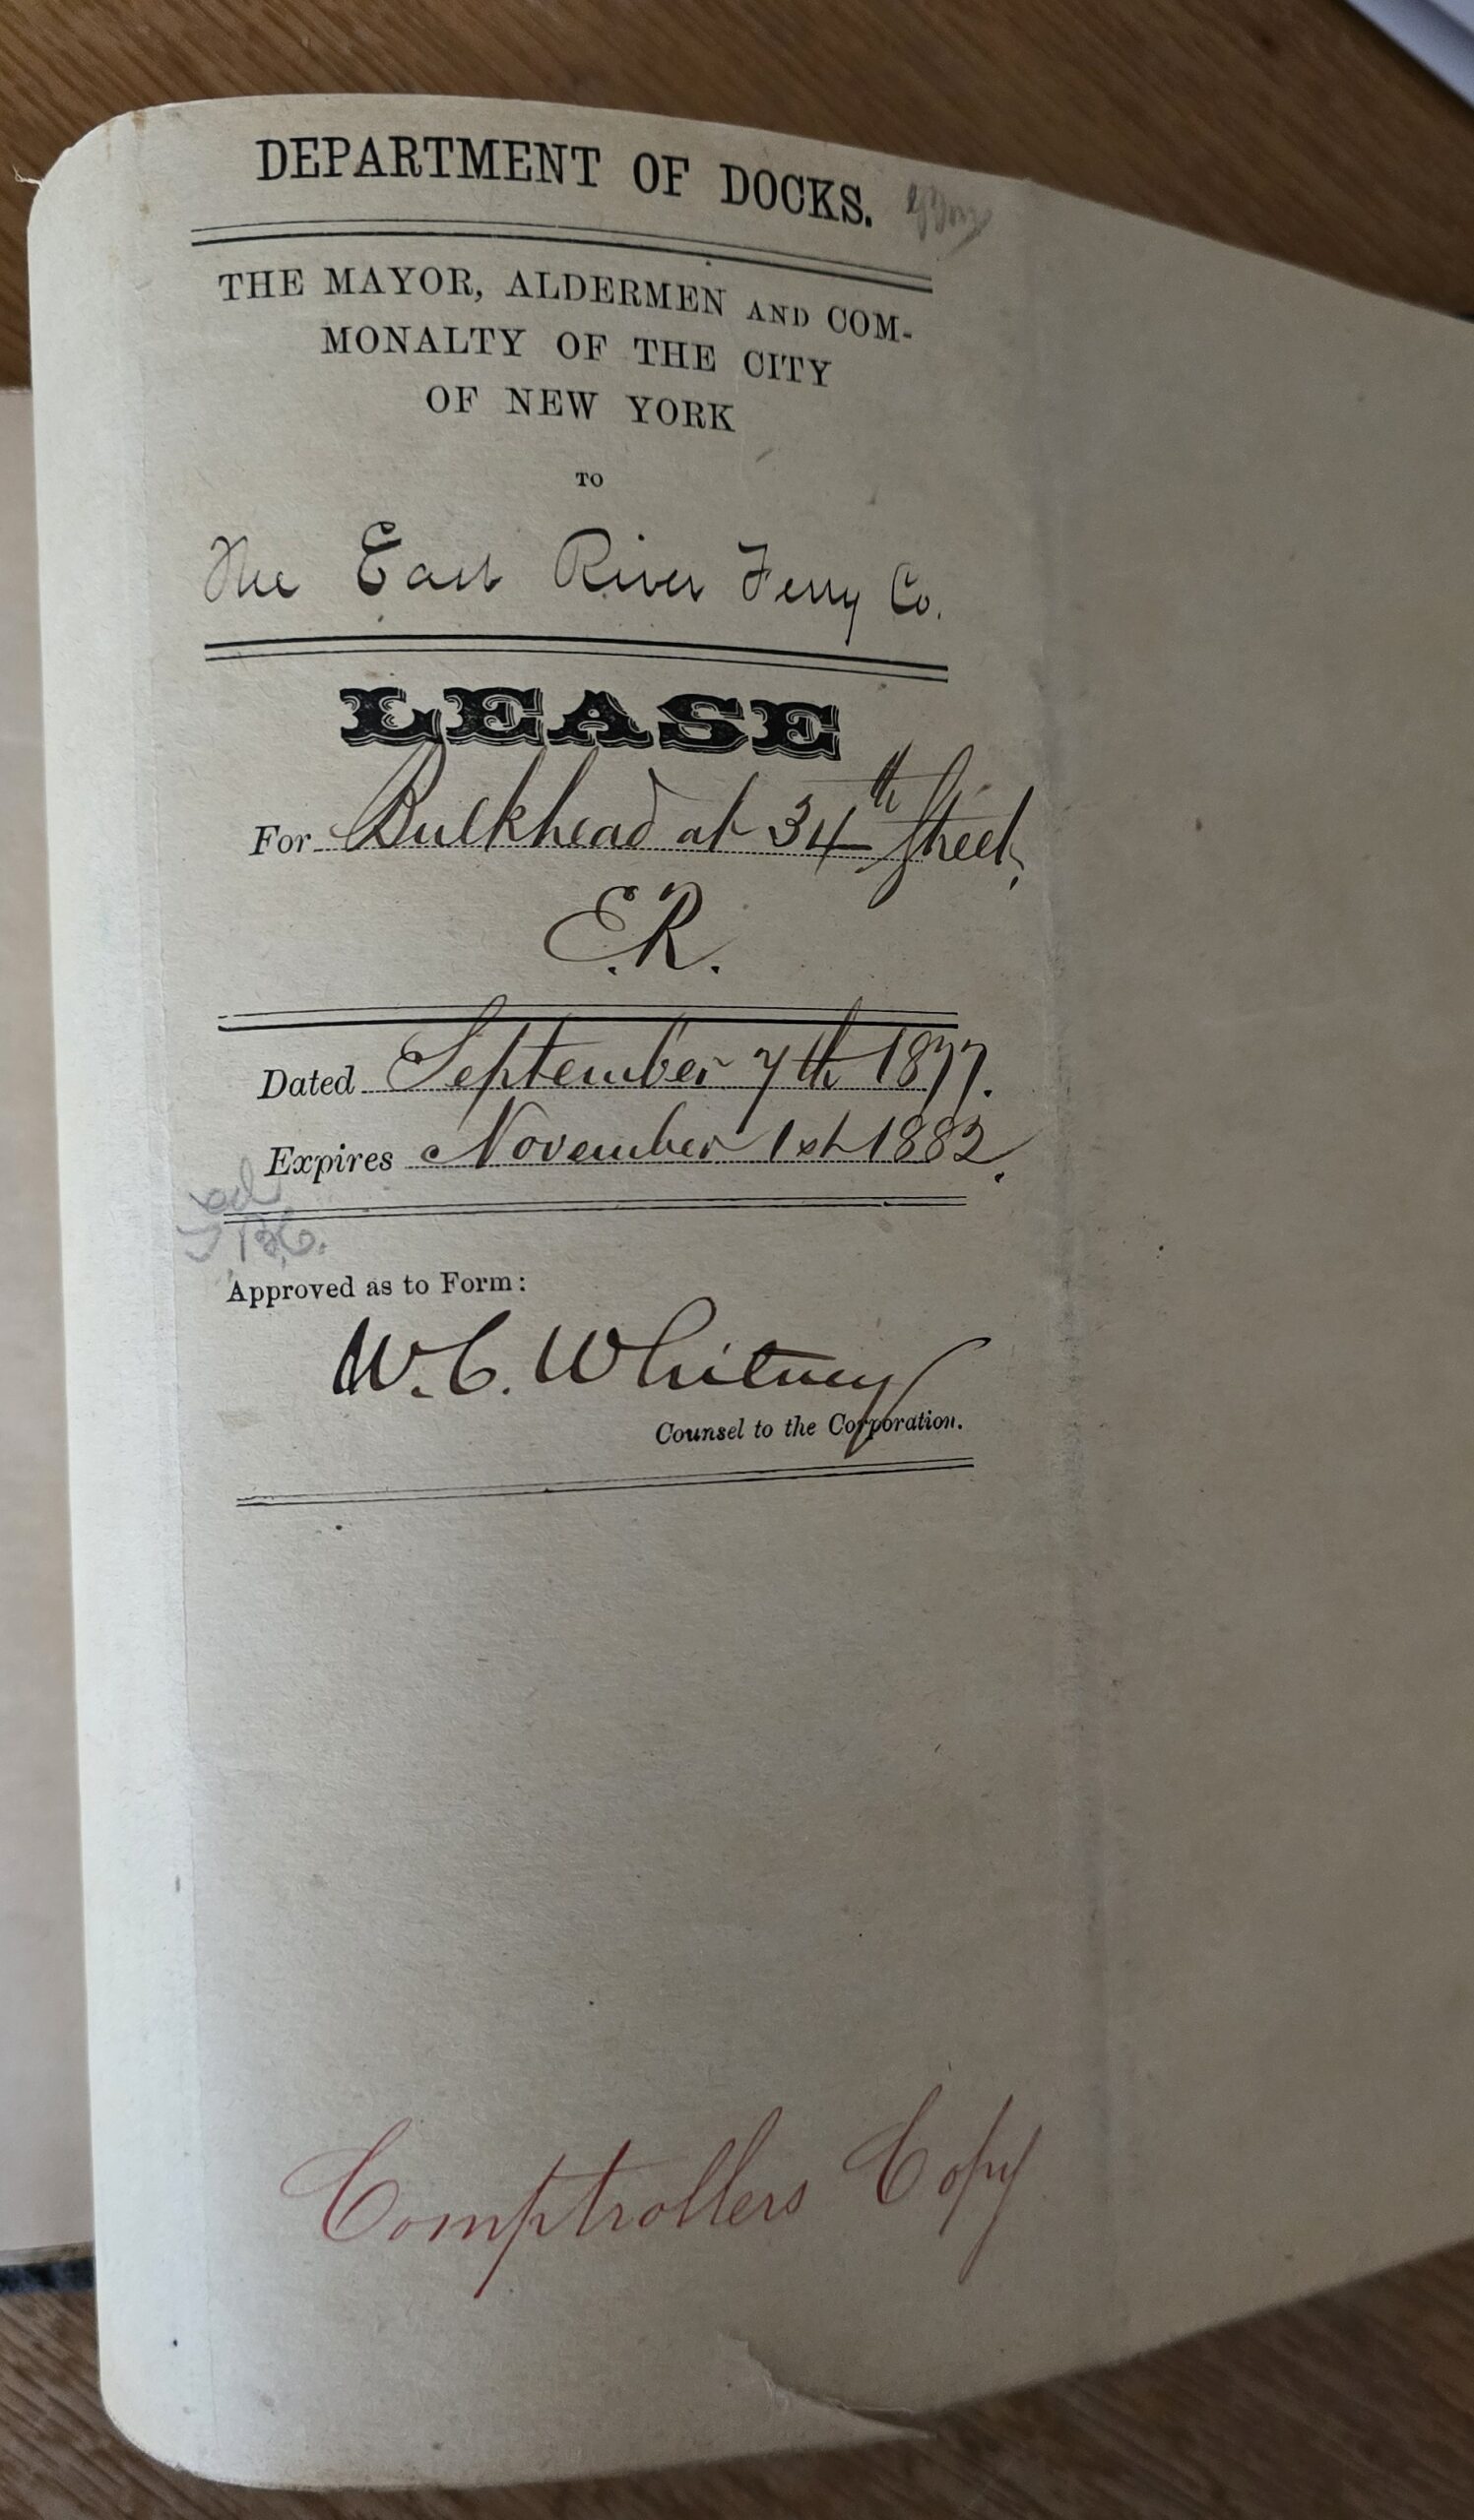 DEPARTMENT OF DOCKS.
THE MAYOR, ALDERMEN AND COM-
MONALTY OF THE CITY
OF NEW YORK
TO
The East River Ferry Co.
LEASE
For Bulkhead at 34th Street,
E.R.
Dated September 7th 1877.
Expires November 1st 1882.
Approved as to Form:
W. C. Whitney
Counsel to the Corporation.
Comptrollers Copy